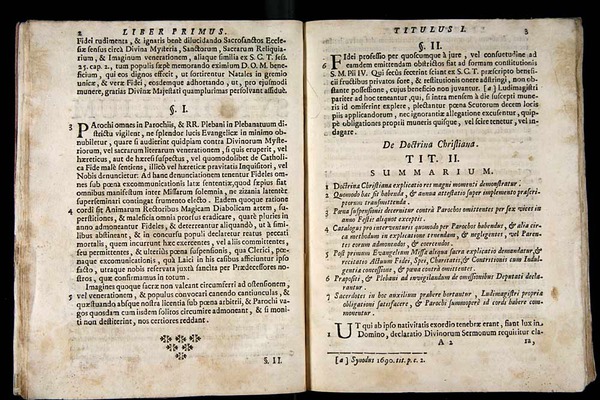 2 LIBER PRIMUS.
Fidei rudimenta, & ignaris benè dilucidando Sacrosanctos Eccle-
siæ sensus circà Divina Mysteria, Sanctorum, Sacrarum Reliquia-
rium, & Imaginum venerationem, aliasque similia ex S.C.T. sess.
25. cap. 2., tum populis sæpè memorando eximium D.O.M. bene-
ficium, qui eos dignos effecit, ut sortirentur Natales in gremio
unicæ, & veræ Fidei, eosdemque adhortando, ut, pro ejusmodi
munere, gratias Divinæ Majestati quamplurimas persolvant assiduè.
§. I.
3 PArochi omnes in Parochiis, & RR. Plebani in Plebanatuum di-
strictu vigilent, ne splendor lucis Evangelicæ in minimo ob-
nubiletur, quare si audierint quidpiam contra Divinorum Myste-
riorum, vel sacrarum literarum venerationem, si quis eruperit, vel
hæreticus, aut de hæresi suspectus, vel quomodolibet de Catholi-
ca Fide malè sentiens, illicò vel hæreticæ pravitatis Inquisitori, vel
Nobis denuncietur: Ad hanc denunciationem tenentur Fideles om-
nes sub pœna excommunicationis latæ sententiæ, quod sæpius fiat
omnibus manifestum inter Missarum solemnia, ne zizania latentèr
superseminari contingat frumento electo. Eadem quoque ratione
4 cordi sit Animarum Rectoribus Magicam Diabolicam artem, su-
perstitiones, & maleficia omnia prorsus eradicare, quarè pluries in
anno admoneantur Fideles, & deterreantur aliquando, ut à simi-
libus abstineant, & in concursu populi declaretur reatus peccati
mortalis, quem incurrunt hæc exercentes, vel aliis committentes,
seu permittentes, & ulteriùs pœna suspensionis, qua Clerici, pœ-
naque excommunicationis, quà Laici in his casibus afficiuntur ipso
facto, utraque nobis reservata juxtà sancita per Prædecessores no-
stros, quæ confirmamus in totum.
Imagines quoque sacræ non valeant circumferri ad ostensionem,
5 vel venerationem, & populos convocari canendo cantiunculas, &
quæstuando absque nostra licentia sub pœna arbitrii, & Parochi va-
gos quosdam cum iisdem solitos circumire admoneant, & si moni-
ti non destiterint, nos certiores reddant.
§. II
TITULUS I. 3
§. II.
6 FIdei professio per quoscumque à jure, vel consuetudine ad
eamdem emittendam obstrictos fiat ad formam constitutionis
S. M. Pii IV. Qui secùs fecerint sciant ex S.C.T. præscripto benefi-
cii fructibus privatos fore, & restitutioni onere adstringi, non ob-
stante possessione, cujus beneficio non juvantur. [a] Ludimagistri
pariter ad hoc teneantur, qui, si intra mensem à die suscepti mune-
ris id omiserint explere, plectantur pœna Scutorum decem locis
piis applicandorum, nec ignorantiæ allegatione excusentur, quip-
pè obligationes propriis muneris quisque, vel scire tenetur, vel in-
dagare.
De Doctrina Christiana.
TIT. II.
SUMMARIUM.
1 Doctrina Christiana explicatio res magni momenti demonstratur.
2 Quomodo hæc sit habenda, & annua attestatio super impletæ præscri-
ptorum transmittenda.
3 Pœna suspensionis decernitur contra Parochos omittentes per sex vices in
anno Festis aliquot exceptis.
4 Catalogus pro intervenientibus quomodo per Parochos habendus, & alia cir-
ca methodum in explicatione tenendam, & negligentes, vel Paren-
tes eorum admonendos, & coercendos.
5 Post primum Evangelium Missæ aliqua sacra explicatio demandatur, &
recitatio Actuum Fidei, Spei, Charitatis, & Contritionis cum Indul-
gentia concessione, & pœna contrà omittentes.
6 Præpositi, & Plebani ad invigilandum de omissionibus Deputati decla-
rantur.
7 Sacerdotes in hoc auxilium præbere hortantur, Ludimagistri propria
obligationi satisfacere, & Parochi summoperè id cordi habere com-
monentur.
1 UT qui ab ipso nativitatis exordio tenebræ erant, fiant lux in
Domino, declaratio Divinorum Sermonum requiritur cla-
A 2 ra,
[a] Synodus 1690. tit. p. c. 2.